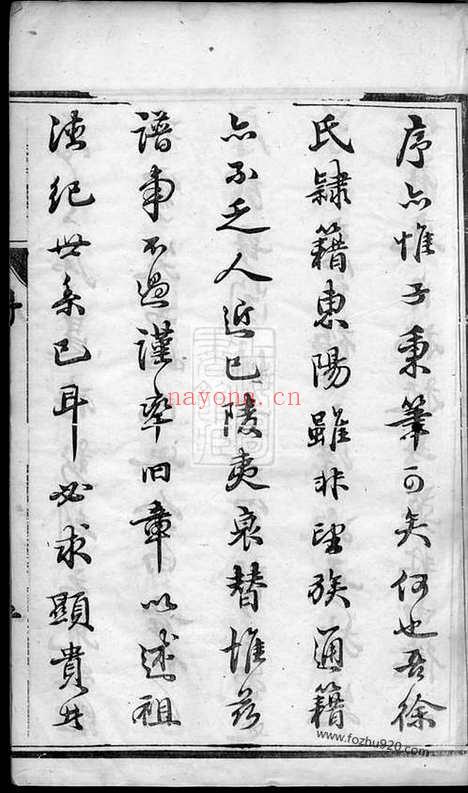 序亦惟子秉筆可矣何也吾徐
氏隸籍東陽雖非望族通籍
亦不乏人近已陵夷衰替惟茲
譜事不過謹率旧章以述祖
德紀世系已耳必求顯貴
nayona.cn
www.fozhu920.com